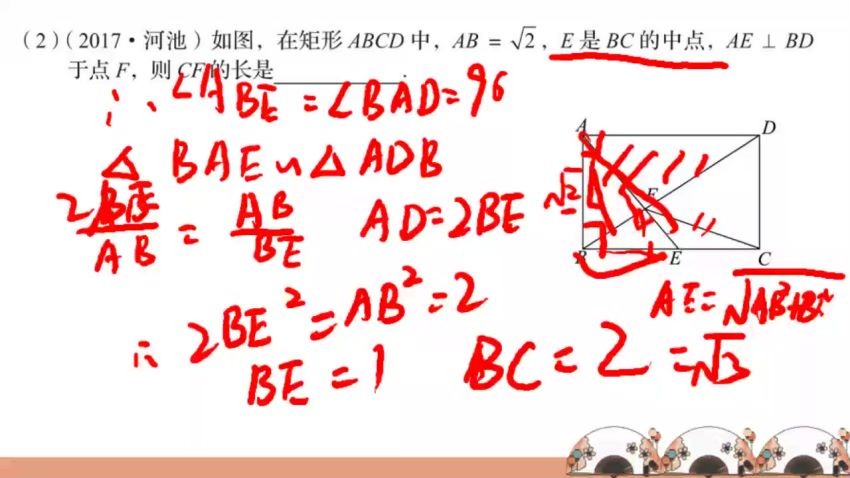 (2)(2017·河池)如图，在矩形ABCD中，AB=√2，E是BC的中点，AE⊥BD
于点F，则CF的长是____________.
∴∠ABE=∠BAD=90
△BAE∽△ADB
2BE/AB=AB/BE AD=2BE
∴2BE²=AB²=2
BE=1 BC=2
AE=√AB²+BE²
=√3
A
D
√2
F
B
E
C